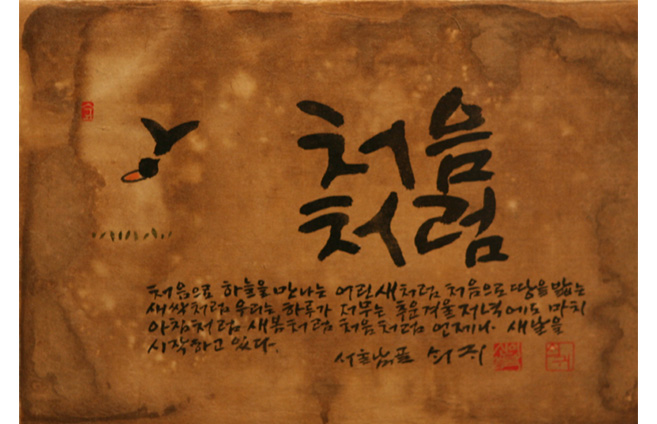 처음
처럼
처음으로 하늘을 만나는 어린새처럼, 처음으로 땅을 밟는
새싹처럼 우리는 하루가 저무는 추운겨울 저녁에도 마치
아침처럼, 새봄처럼, 처음처럼 언제나 새날을
시작하고 있다.
서울남표 쇠귀